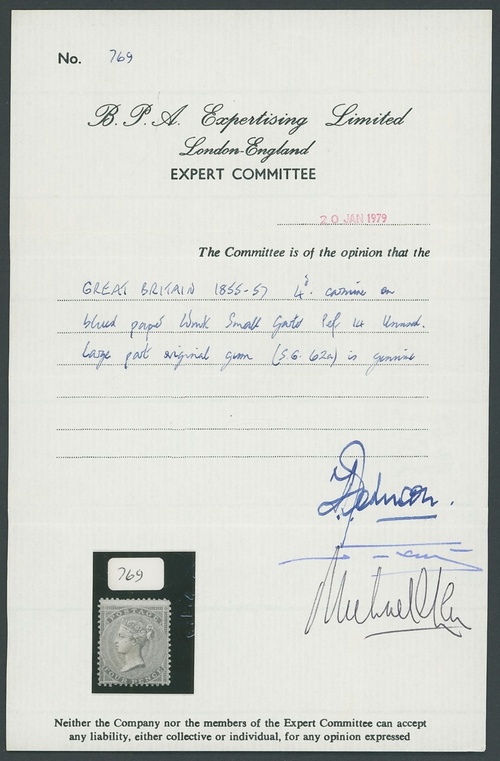 No. 769
B.P.A. Expertising Limited
London-England
EXPERT COMMITTEE
20 JAN 1979
The Committee is of the opinion that the
GREAT BRITAIN 1855-57 4d. carmine on
blued paper Wmk Small Garter Perf 14 Unused.
Large part original gum (S.G. 62a) is genuine
769
POSTAGE
FOUR PENCE
Neither the Company nor the members of the Expert Committee can accept
any liability, either collective or individual, for any opinion expressed